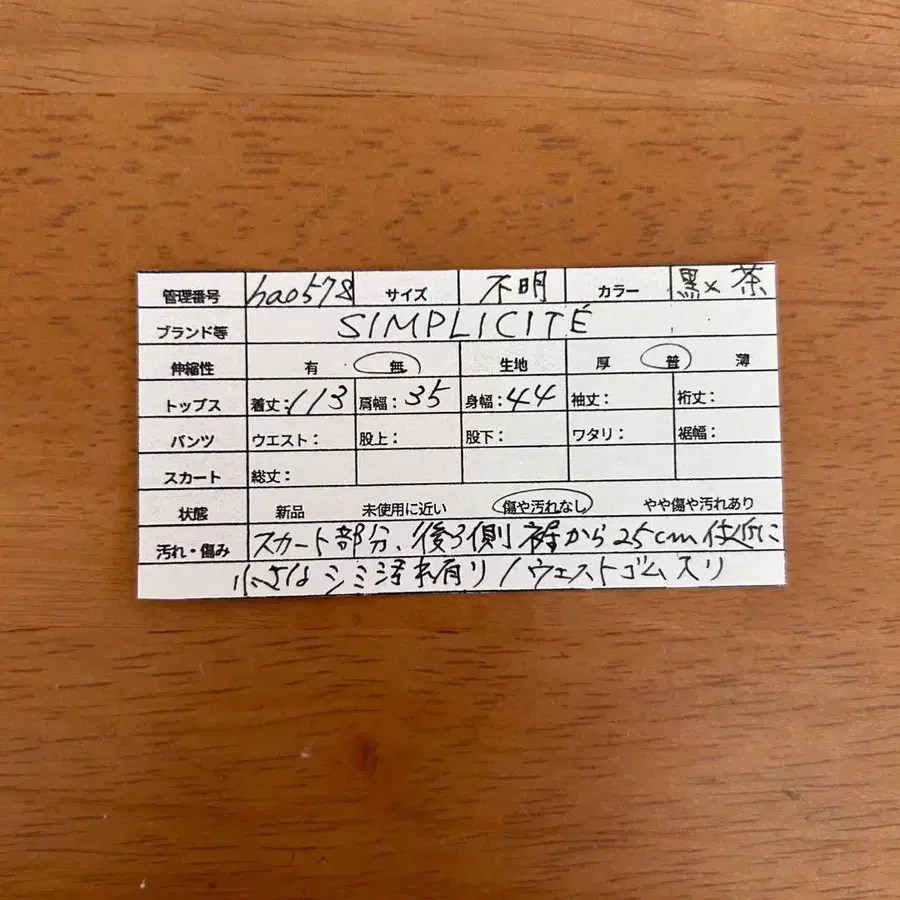 管理番号 hao578 サイズ 不明 カラー 黒×茶
ブランド等 SIMPLICITÉ
伸縮性 有 無 生地 厚 普 薄
トップス 着丈:113 肩幅:35 身幅:44 袖丈: 裄丈:
パンツ ウエスト: 股上: 股下: ワタリ: 裾幅:
スカート 総丈:
状態 新品 未使用に近い 傷や汚れなし やや傷や汚れあり
汚れ・傷み スカート部分、後ろ側 裾から25cm付近に
小さなシミ汚れ有り/ウェストゴム入り